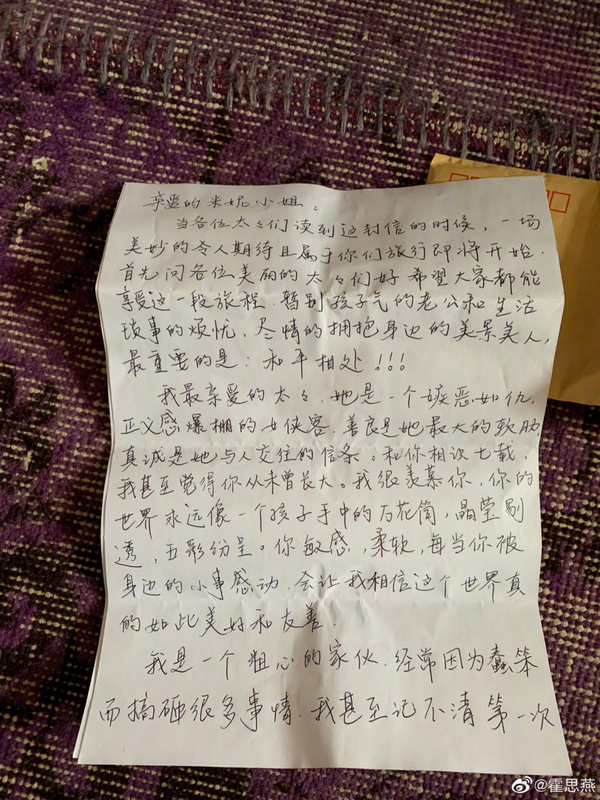 亲爱的米妮小姐：
当各位太々们读到这封信的时候，一场
美妙的令人期待且属于你们旅行即将开始.
首先问各位美丽的太々们好 希望大家都能
享受这一段旅程. 暂别孩子气的老公和生活
琐事的烦忧. 尽情的拥抱身边的美景美人,
最重要的是：和平相处！！！
我最亲爱的太々. 她是一个嫉恶如仇.
正义感爆棚的女侠客. 善良是她最大的软肋
真诚是她与人交往的信条。和你相识七载.
我甚至觉得你从未曾长大。我很羡慕你，你的
世界永远像一个孩子手中的万花筒，晶莹剔
透，五彩纷呈。你敏感，柔软，每当你被
身边的小事感动. 会让我相信这个世界真
的如此美好和友善.
我是一个粗心的家伙. 经常因为蠢笨
而搞砸很多事情. 我甚至记不清第一次
@霍思燕